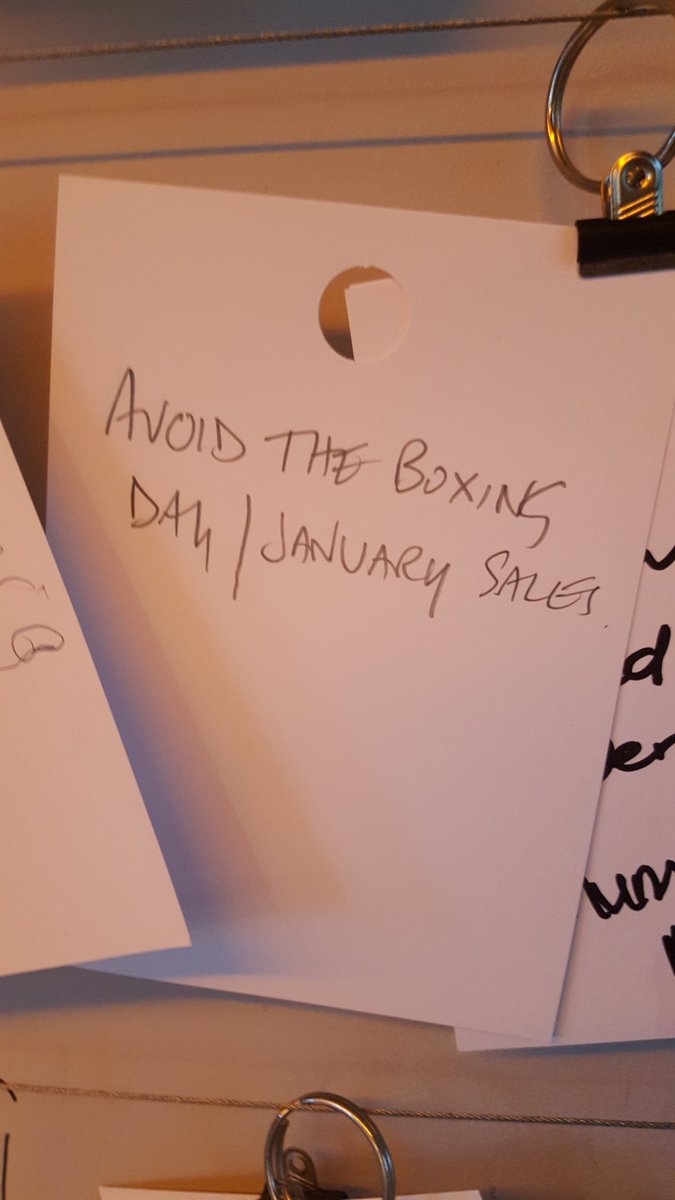 AVOID THE BOXING
DAY / JANUARY SALES.